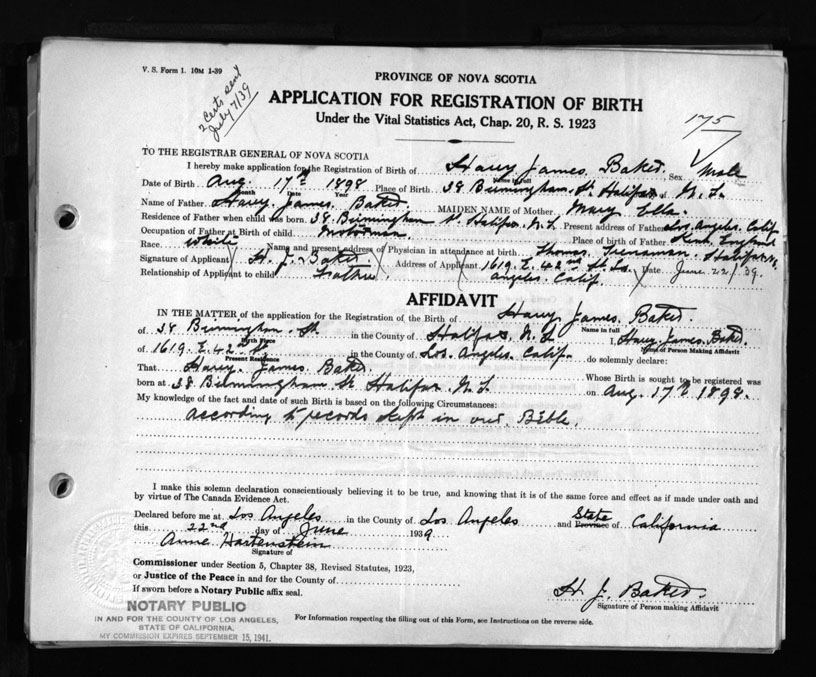 V. S. Form 1. 10M 1-39
2 Certs sent
July 7/39
PROVINCE OF NOVA SCOTIA
APPLICATION FOR REGISTRATION OF BIRTH
Under the Vital Statistics Act, Chap. 20, R. S. 1923
175
TO THE REGISTRAR GENERAL OF NOVA SCOTIA
I hereby make application for the Registration of Birth of Harry James Baker Sex Male
Name in full
Date of Birth Aug 17th 1898 Place of Birth 38 Birmingham St Halifax N. S.
Month Date Year
Name of Father Harry James Baker MAIDEN NAME of Mother Mary Ella
Residence of Father when child was born 38 Birmingham St Halifax N.S. Present address of Father Los Angeles Calif
Occupation of Father at Birth of child Motorman Place of birth of Father Kent England
Race white Name and present address of Physician in attendance at birth Thomas Trenaman Halifax N.S.
Signature of Applicant H. J. Baker Address of Applicant 1619 E. 42nd St Los Angeles Calif. Date June 22/39
Relationship of Applicant to child Father
AFFIDAVIT
IN THE MATTER of the application for the Registration of the Birth of Harry James Baker
Name in full
of 38 Birmingham St in the County of Halifax N. S. I, Harry James Baker
Birth Place Name of Person Making Affidavit
of 1619 E. 42 St. in the County of Los Angeles Calif. do solemnly declare:
Present Residence
That Harry James Baker Whose Birth is sought to be registered was
born at 38 Birmingham St Halifax N. S. on Aug. 17th 1898.
My knowledge of the fact and date of such Birth is based on the following Circumstances:
according to records kept in our Bible.
I make this solemn declaration conscientiously believing it to be true, and knowing that it is of the same force and effect as if made under oath and
by virtue of The Canada Evidence Act.
Declared before me at Los Angeles in the County of Los Angeles and State Province of California
this 22nd day of June 1939
Anne Hartenstein
Signature of
Commissioner under Section 5, Chapter 38, Revised Statutes, 1923,
or Justice of the Peace in and for the County of
If sworn before a Notary Public affix seal.
H. J. Baker.
Signature of Person making Affidavit
NOTARY PUBLIC
IN AND FOR THE COUNTY OF LOS ANGELES,
STATE OF CALIFORNIA.
MY COMMISSION EXPIRES SEPTEMBER 15, 1941.
For Information respecting the filling out of this Form, see Instructions on the reverse side.